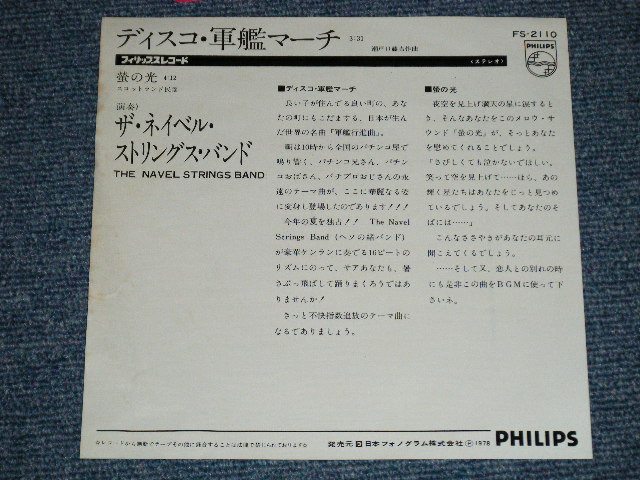 ディスコ・軍艦マーチ 3:31
瀬戸口藤吉作曲
FS-2110
PHILIPS
フィリップスレコード
〈ステレオ〉
螢の光 4:12
スコットランド民謡
演奏)
ザ・ネイベル・
ストリングス・バンド
THE NAVEL STRINGS BAND
■ディスコ・軍艦マーチ
良い子が住んでる良い町の、あな
たの町にもこだまする、日本が生ん
だ世界の名曲「軍艦行進曲」。
朝は10時から全国のパチンコ屋で
鳴り響く、パチンコ兄さん、パチン
コおばさん、パチプロおじさんの永
遠のテーマ曲が、ここに華麗なる姿
に変身し登場したのであります!!!
今年の夏を独占!! The Navel
Strings Band(ヘソの緒バンド)
が豪華ケンランに奏でる16ビートの
リズムにのって、サアあなたも、暑
さぶっ飛ばして踊りまくろうではあ
りませんか!
きっと不快指数追放のテーマ曲に
なるでありましょう。
■螢の光
夜空を見上げ満天の星に涙すると
き、そんなあなたをこのメロウ・サ
ウンド「螢の光」が、そっとあなた
を慰めてくれることでしょう。
「さびしくても泣かないでほしい。
笑って空を見上げて……ほら、あの
輝く星たちはあなたをじっと見つめ
ているでしょう。そしてあなたのそ
ばには……」
こんなささやきがあなたの耳元に
聞こえてくるでしょう。
……そして又、恋人との別れの時
にも是非この曲をBGMに使って下
さいネ。
発売元 日本フォノグラム株式会社 Ⓟ1978
PHILIPS